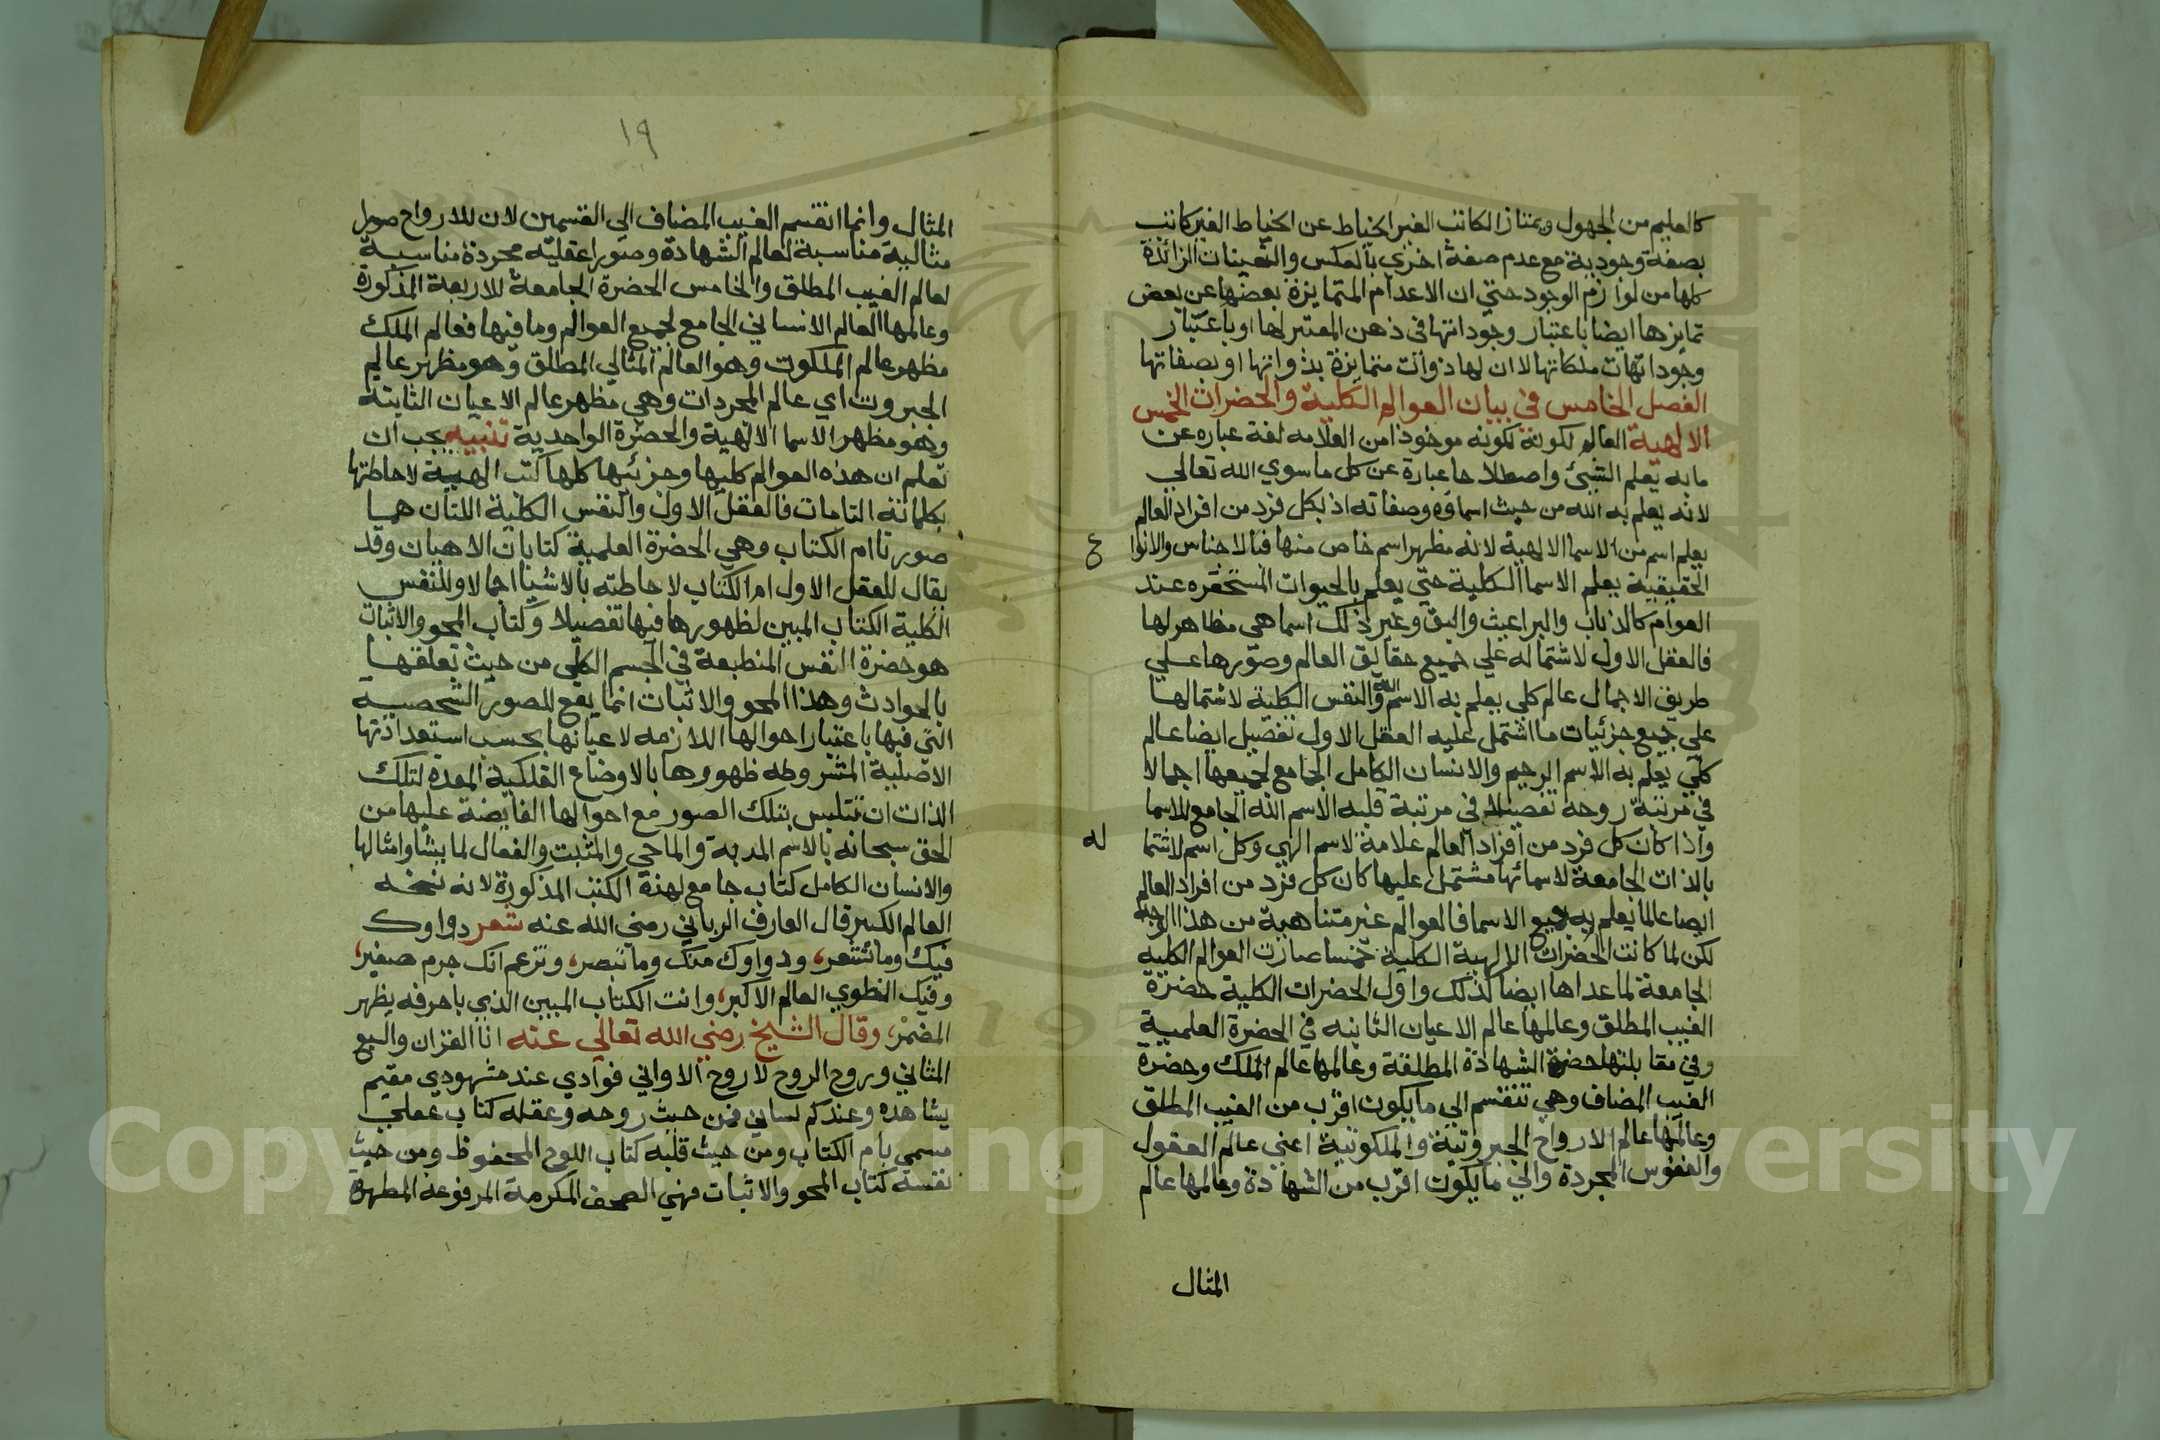 كالعليم من الجهول ويمتاز الكاتب الغير الخياط عن الخياط الغير كاتب
بصفة وجودية مع عدم صفة اخري بالعكس والتعينات الزائدة
كلها من لوازم الوجود حتي ان الاعدام المتمايزة بعضها عن بعض
تمايزها ايضا باعتبار وجوداتها في ذهن المعتبر لها او باعتبار
وجودات ملكاتها لا ان لها ذوات متمايزة بذواتها او بصفاتها
الفصل الخامس في بيان العوالم الكلية والحضرات الخمس
الالهية العالم لكونه موخوذا من العلامه لغة عباره عن
ما به يعلم الشيئ واصطلاحا عبارة عن كل ما سوي الله تعالي
لانه يعلم به الله من حيث اسماؤه وصفاته اذ بكل فرد من افراد العالم
يعلم اسم من الاسما الالهية لانه مظهر اسم خاص منها فبالاجناس والانوا
ع
الحقيقية يعلم الاسما الكلية حتي يعلم بالحيوات المستحقره عند
العوام كالذباب والبراعيث والبق وغير ذلك اسما هي مظاهر لها
فالعقل الاول لاشتماله علي جميع حقايق العالم وصورها علي
طريق الاجمال عالم كلي يعلم به الاسم الله والنفس الكلية لاشتمالها
علي جميع جزئيات ما اشتمل عليه العقل الاول تفصيل ايضا عالم
كلي يعلم به الاسم الرحيم والانسان الكامل الجامع لجميعها اجمالا
في مرتبة روحه تفصيلا في مرتبة قلبه الاسم الله الجامع للاسما
واذا كان كل فرد من افراد العالم علامة لاسم الهي وكل اسم لاشتما
له
بالذات الجامعة لاسمائها مشتمل عليها كان كل فرد من افراد العالم
ايضا عالما يعلم به جميع الاسما فالعوالم غير متناهية من هذا الوجه
لكن لما كانت الحضرات الالهية الكلية خمسا صارت العوالم الكلية
الجامعة لما عداها ايضا كذلك واول الحضرات الكلية حضرة
الغيب المطلق وعالمها عالم الاعيان الثابته في الحضرة العلمية
وفي مقابلتها حضرة الشهادة المطلقة وعالمها عالم الملك وحضرة
الغيب المضاف وهي تنقسم الي ما يكون اقرب من الغيب المطلق
وعالمها عالم الارواح الجبروتية والملكوتية اعني عالم العقول
والنفوس المجردة والي ما يكون اقرب من الشهادة وعالمها عالم
المثال
١٩
المثال وانما انقسم الغيب المضاف الي القسمين لان للارواح صورا
مثالية مناسبة لعالم الشهادة وصورا عقليه مجردة مناسبة
لعالم الغيب المطلق والخامس الحضرة الجامعة للاربعة المذكورة
وعالمها العالم الانساني الجامع لجميع العوالم وما فيها فعالم الملك
مظهر عالم الملكوت وهو العالم المثالي المطلق وهو مظهر عالم
الجبروت اي عالم المجردات وهي مظهر عالم الاعيان الثابتة
وهو مظهر الاسما الالهية والحضرة الواحدية تنبيه يجب ان
تعلم ان هذه العوالم كليها وجزئيها كلها كتب الهية لاحاطتها
بكلماته التامات فالعقل الاول والنفس الكلية اللتان هما
صورتا ام الكتاب وهي الحضرة العلمية كتابان الاهيان وقد
يقال للعقل الاول ام الكتاب لاحاطته بالاشيا اجمالا وللنفس
الكلية الكتاب المبين لظهورها فيها تفصيلا وكتاب المحو والاثبات
هو حضرة النفس المنطبعة في الجسم الكلي من حيث تعلقها
بالحوادث وهذا المحو والاثبات انما يقع للصور الشخصية
التي فيها باعتبار احوالها اللازمه لاعيانها بحسب استعداداتها
الاصلية المشروطه ظهورها بالاوضاع الفلكية المعده لتلك
الذات ان تتلبس بتلك الصور مع احوالها الفايضة عليها من
الحق سبحانه بالاسم المدبر والماحي والمثبت والفعال لما يشا وامثالها
والانسان الكامل كتاب جامع لهذه الكتب المذكورة لانه نسخه
العالم الكبير قال العارف الرباني رضي الله عنه شعر دواوك
فيك وما تشعر، ودواوك منك وما تبصر، وتزعم انك جرم صغير،
وفيك انطوي العالم الاكبر، وانت الكتاب المبين الذي باحرفه يظهر
المضمر، وقال الشيخ رضي الله تعالي عنه انا القران والسبع
المثاني وروح الروح لا روح الاواني فوادي عند مشهودي مقيم
يشاهده وعندكم لساني فمن حيث روحه وعقله كتاب عقلي
مسمي بام الكتاب ومن حيث قلبه كتاب اللوح المحفوظ ومن حيث
نفسه كتاب المحو والاثبات فهي الصحف المكرمة المرفوعة المطهرة
Copyright © King Saud University